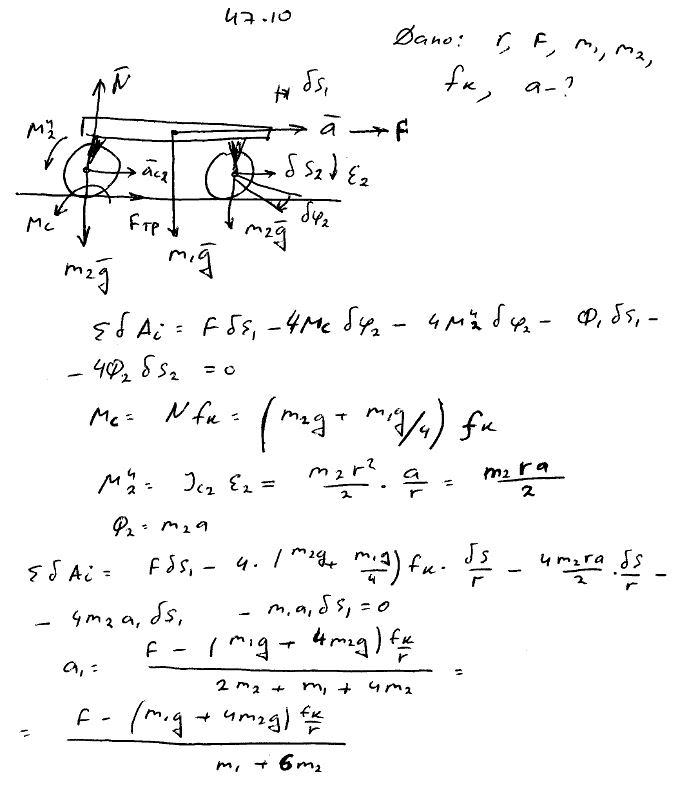 47.10
Дано: r, F, m₁, m₂,
fк, a-?
N̄
δS₁
M₂ᶣ
ā → F
āc₂
δS₂ ε₂
Mc
Fтр
m₂ḡ
δφ₂
m₁ḡ
m₂ḡ
ΣδAi = FδS₁ - 4Mc δφ₂ - 4M₂ᶣ δφ₂ - Φ₁ δS₁ -
- 4Φ₂ δS₂ = 0
Mc = Nfк = (m₂g + m₁g/4) fк
M₂ᶣ = Jc₂ ε₂ = m₂r²/2 · a/r = m₂ra/2
Φ₂ = m₂a
ΣδAi = FδS₁ - 4·(m₂g + m₁g/4) fк · δS/r - 4m₂ra/2 · δS/r -
- 4m₂a₁δS₁ - m₁a₁δS₁ = 0
a₁ = (F - (m₁g + 4m₂g) fк/r)/(2m₂ + m₁ + 4m₂) =
= (F - (m₁g + 4m₂g) fк/r)/(m₁ + 6m₂)